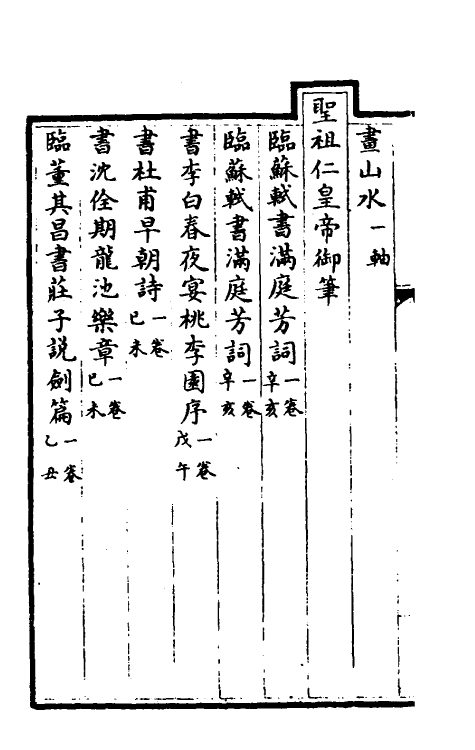 畫山水一軸
聖祖仁皇帝御筆
臨蘇軾書滿庭芳詞一卷辛亥
臨蘇軾書滿庭芳詞一卷辛亥
書李白春夜宴桃李園序一卷戊午
書杜甫早朝詩一卷己未
書沈佺期龍池樂章一卷己未
臨董其昌書莊子説劍篇一卷乙丑